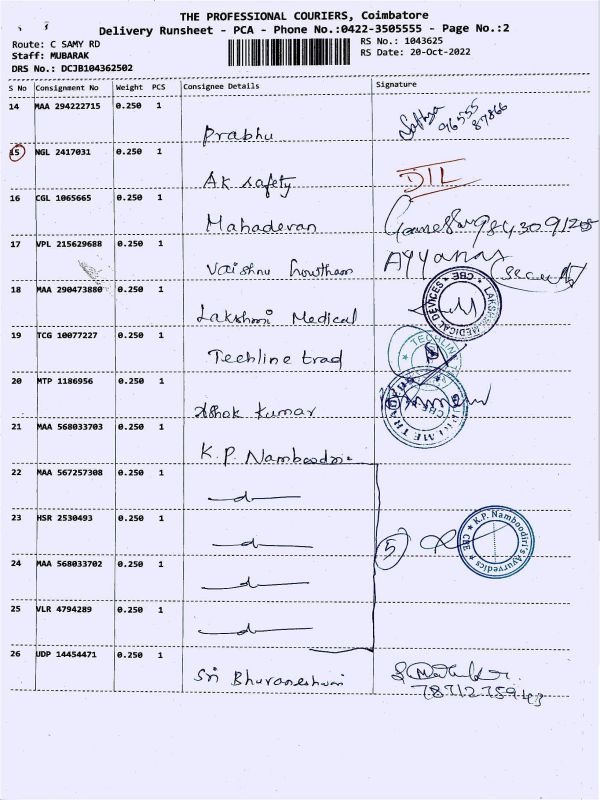 THE PROFESSIONAL COURIERS, Coimbatore
Delivery Runsheet - PCA - Phone No.:0422-3505555 - Page No.:2
Route: C SAMY RD
RS No.: 1043625
Staff: MUBARAK
RS Date: 20-Oct-2022
DRS No.: DCJB104362502
S No Consignment No Weight PCS Consignee Details Signature
14 MAA 294222715 0.250 1
Prabhu 96555 87866
15 NGL 2417031 0.250 1
AK Safety DIL
16 CGL 1065665 0.250 1
Mahadevan
17 VPL 215629688 0.250 1
Vaishnu Gowtham AYYANAR (Security)
18 MAA 290473880 0.250 1
Lakshmi Medical LAKSHMI MEDICAL DEVICES * CBE *
19 TCG 10077227 0.250 1
Techline trad TECHLINE
20 MTP 1186956 0.250 1
Ashok Kumar SUPREME TRADERS CBE
21 MAA 568033703 0.250 1
K.P. Namboodri
22 MAA 567257308 0.250 1
d
23 HSR 2530493 0.250 1
d 5 K.P. Namboodiri's Ayurvedics * CBE *
24 MAA 568033702 0.250 1
d
25 VLR 4794289 0.250 1
d
26 UDP 14454471 0.250 1
Sri Bhuvaneshwari